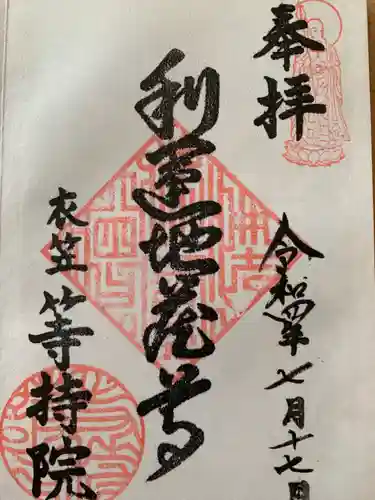 奉拝
令和四年
七月十七日
利運地蔵尊
衣笠
等持院